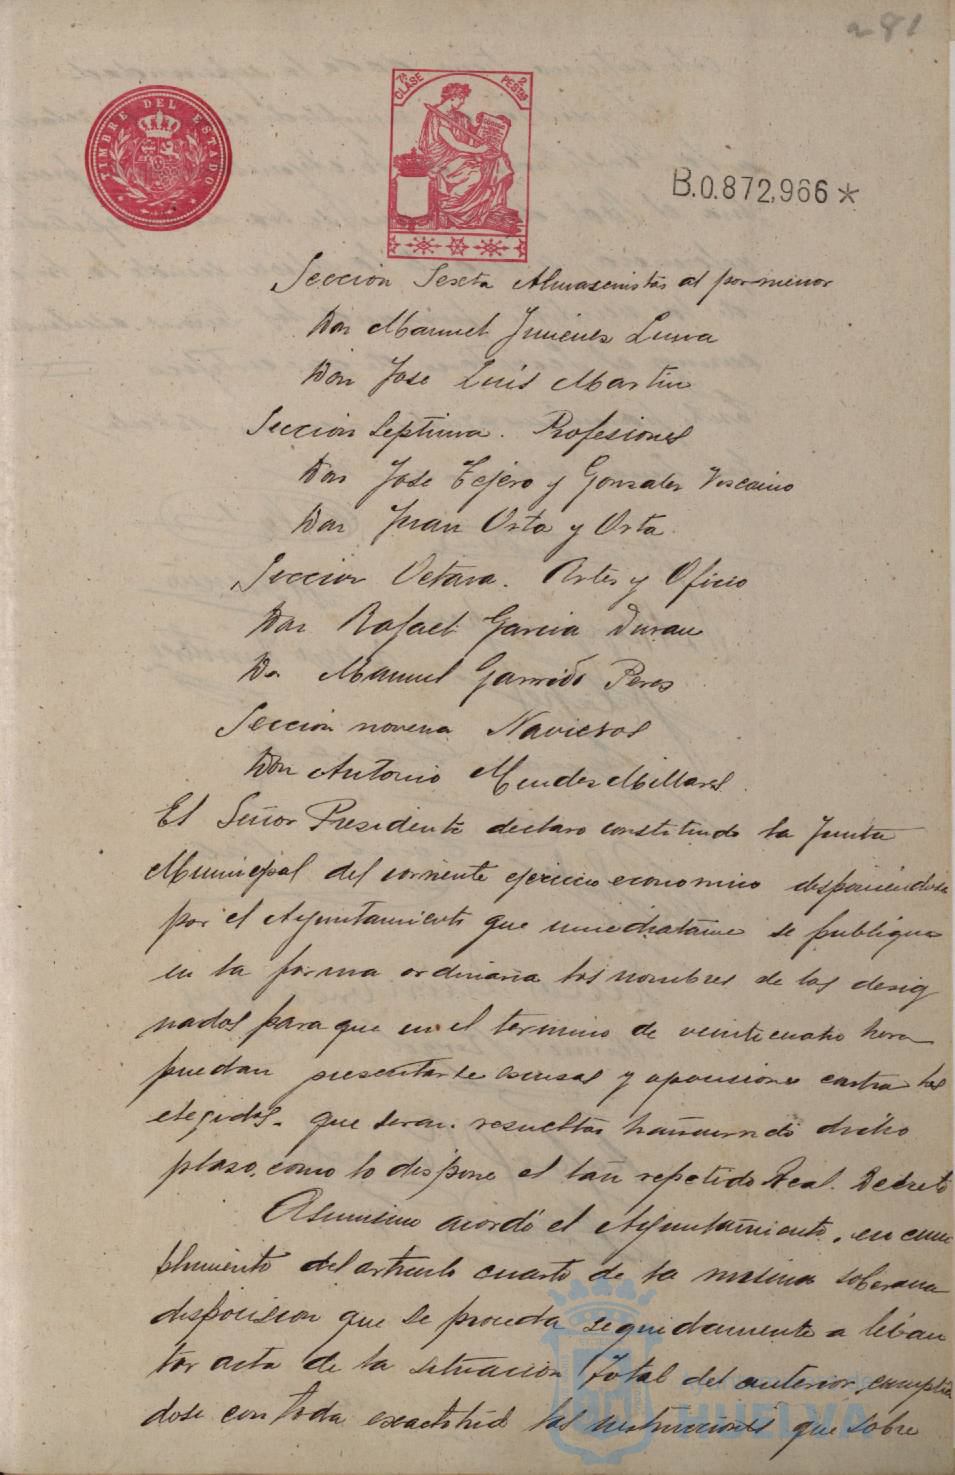 281
TIMBRE DEL ESTADO
7ª CLASE 2 PESTAS
B.0.872,966 *
Seccion Sexta Almasenistas al por menor
Don Manuel Jimenes Luna
Don Jose Luis Martin
Seccion Septima. Profesiones
Don Jose Tejero y Gonzales Viscaino
Don Juan Orta y Orta
Seccion Octava. Artes y Oficio
Don Rafael Garcia Duran
Dn Manuel Garrido Peres
Seccion novena Navieros
Don Antonio Mendes Millares.
El Señor Presidente declaro constituida la Junta
Municipal del corriente ejercicio economico disponiendose
por el Ayuntamiento que se publique
en la forma ordinaria los nombres de los desig
nados para que en el termino de veinticuatro hora
puedan presentarse escusas y oposiciones contra los
elegidos. que seran resueltas dicho
plaso, como lo dispone el tan repetido Real. Decreto
Asimismo acordó el Ayuntamiento, en cum
plimiento del articulo cuarto de la misma soberana
disposicion que se proceda seguidamente a leban
tar acta de la situacion total del anterior, cumplien
dose con toda exactitud las instrucciones que sobre
HUELVA